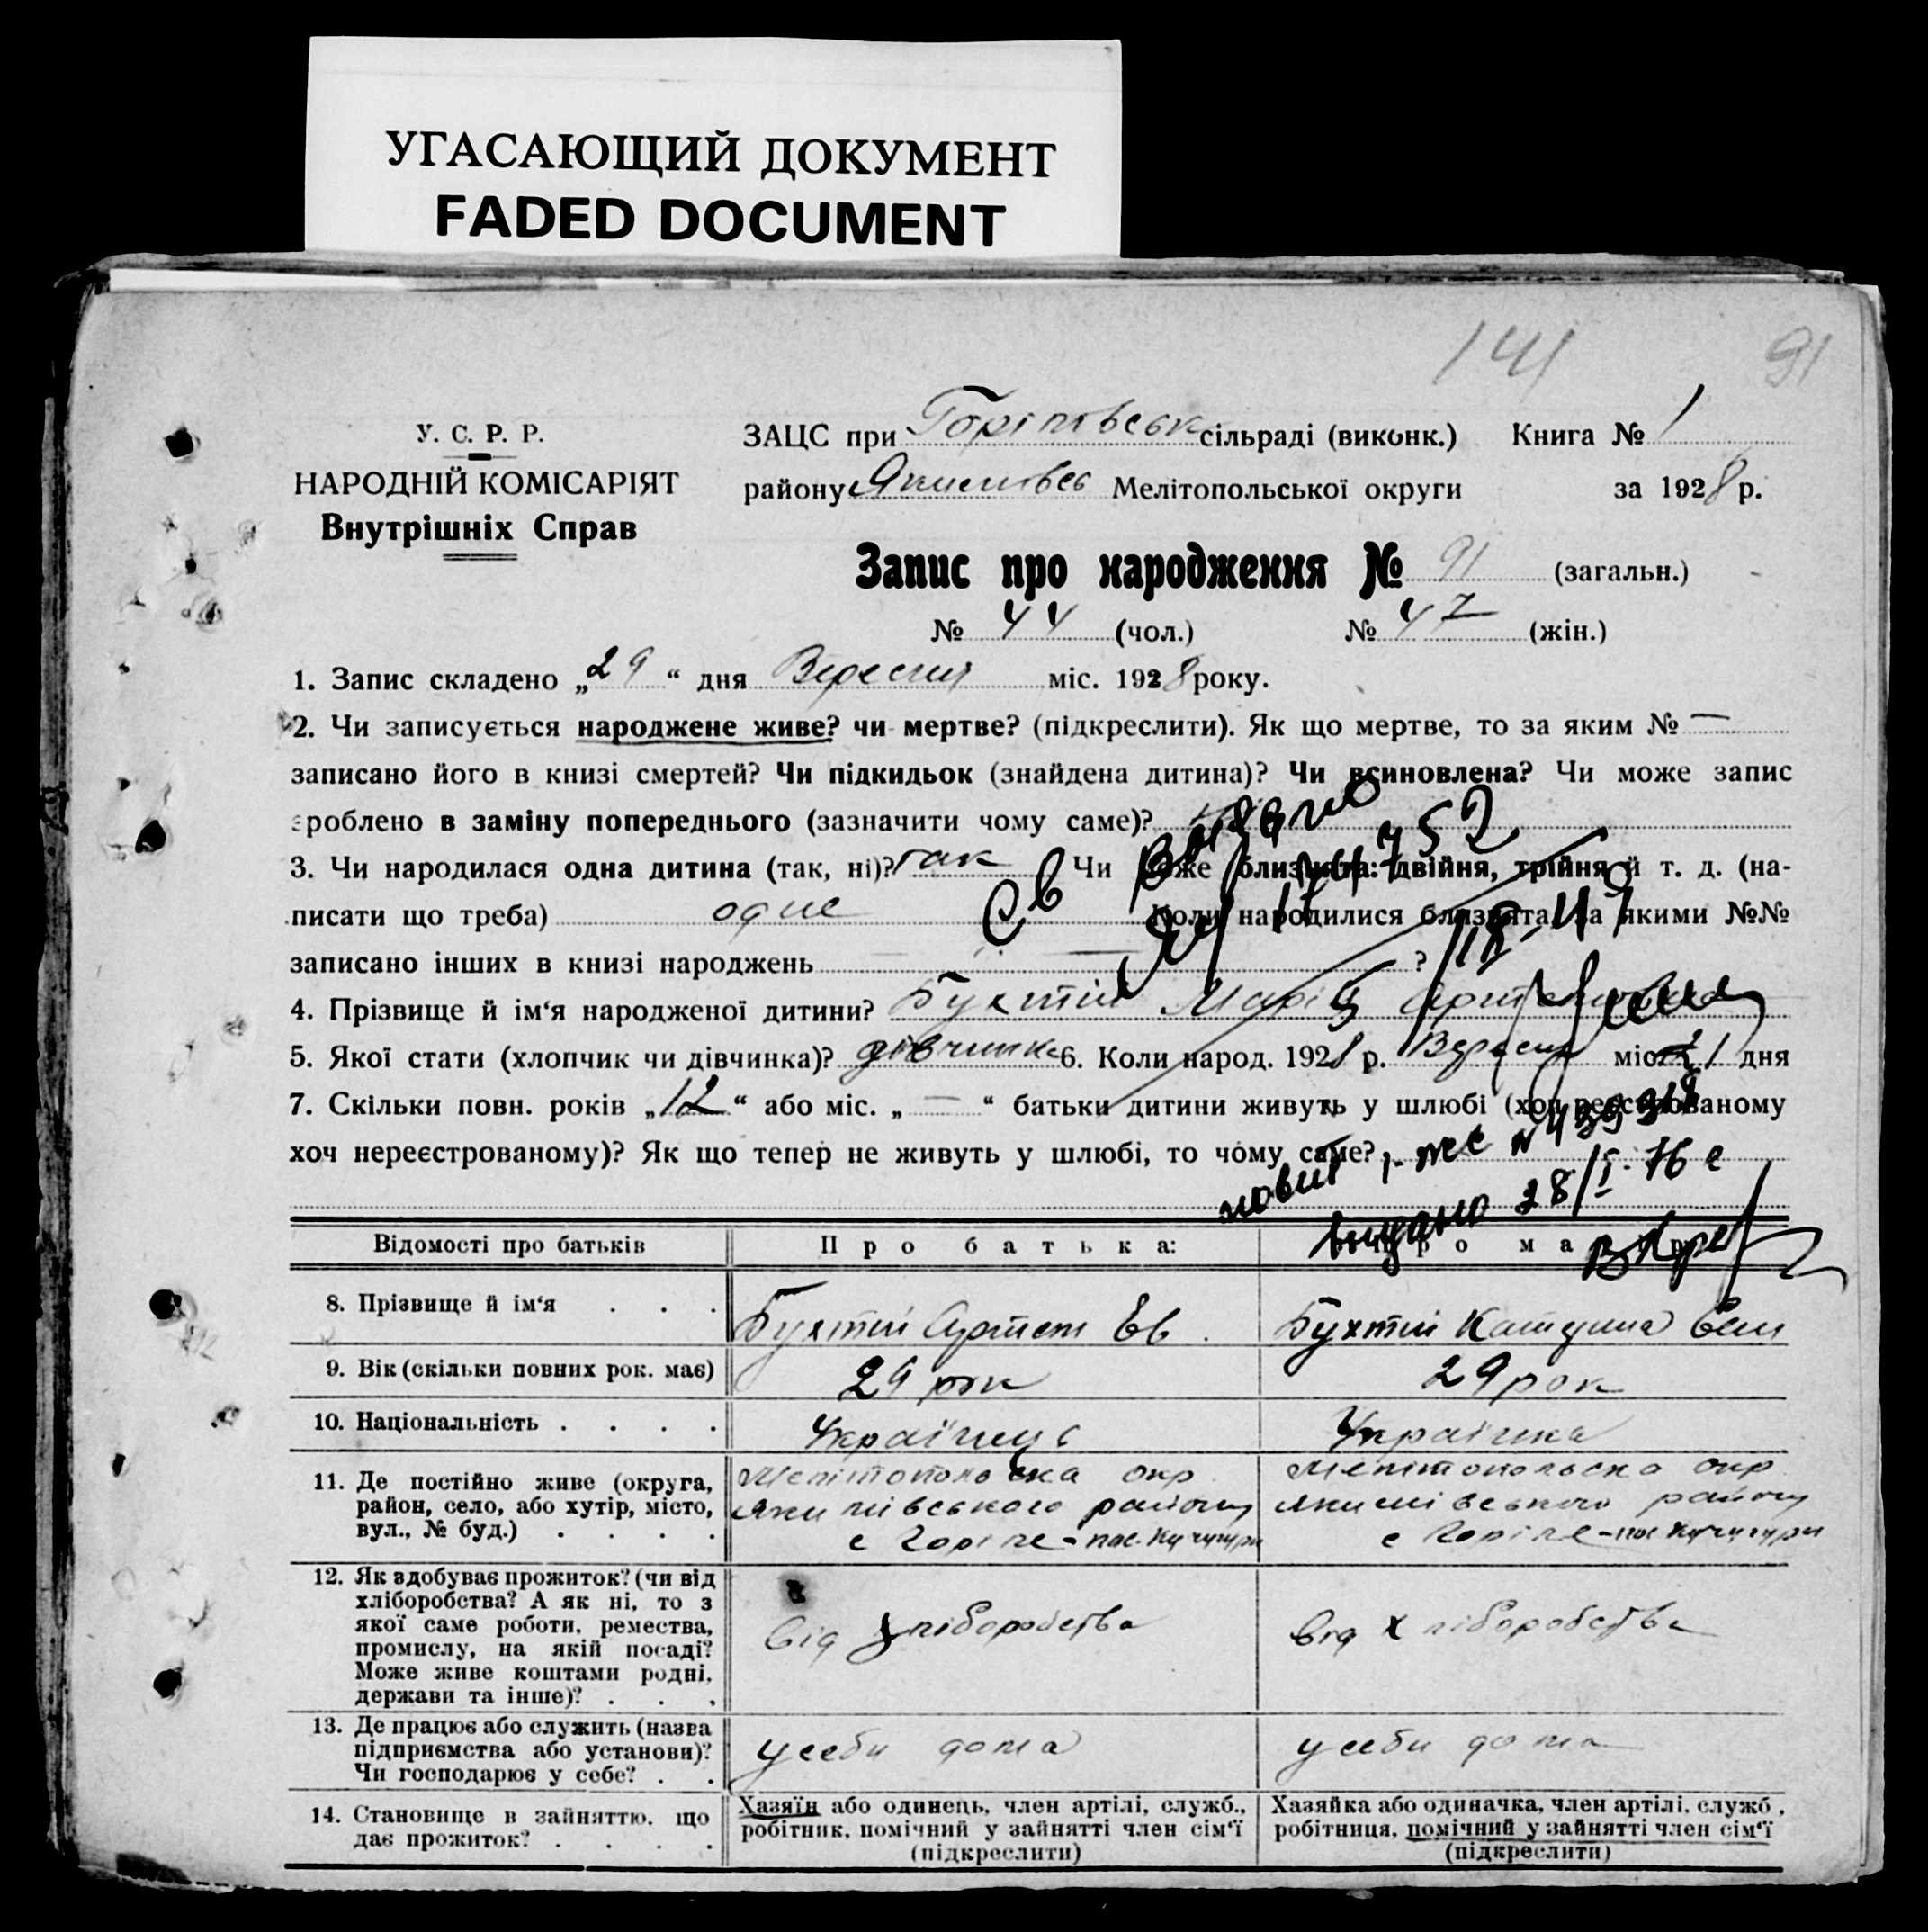 УГАСАЮЩИЙ ДОКУМЕНТ
FADED DOCUMENT
141 91
У. С. Р. Р.
НАРОДНІЙ КОМІСАРІЯТ
Внутрішніх Справ
ЗАЦС при сільраді (виконк.) Книга № 1
району Мелітопольської округи за 1928 р.
Запис про народження № 91 (загальн.)
№ 44 (чол.) № 47 (жін.)
1. Запис складено „29“ дня Вересня міс. 1928 року.
2. Чи записується народжене живе? чи мертве? (підкреслити). Як що мертве, то за яким № —
записано його в книзі смертей? Чи підкидьок (знайдена дитина)? Чи всиновлена? Чи може запис
зроблено в заміну попереднього (зазначити чому саме)?
3. Чи народилася одна дитина (так, ні)? так Чи може близнята: двійня, трійня й т. д. (на-
писати що треба) одне Коли народилися близнята, за якими №№
записано інших в книзі народжень — — ?
4. Прізвище й ім‘я народженої дитини? Бухтій Марія Артемовна
5. Якої стати (хлопчик чи дівчинка)? дівчинка 6. Коли народ. 1928 р. Вересня міс. 21 дня
7. Скільки повн. років „12“ або міс. „—“ батьки дитини живуть у шлюбі (хоч реєстрованому
хоч нереєстрованому)? Як що тепер не живуть у шлюбі, то чому саме?
видано 28/I-76 г
Відомості про батьків Про батька: Про матір:
8. Прізвище й ім‘я . . . Бухтій Артем Ев. Бухтій Катерина
9. Вік (скільки повних рок. має) 29 рок 29 рок
10. Національність . . . . Українець Українка
11. Де постійно живе (округа,
район, село, або хутір, місто,
вул., № буд.) . . . .
Мелітопольська окр.
Якимівського району
с Горіле-пос. Кучугури
Мелітопольска окр.
Якимівського району
с Горіле-пос Кучугури
12. Як здобуває прожиток? (чи від
хліборобства? А як ні, то з
якої саме роботи, ремества,
промислу, на якій посаді?
Може живе коштами родні,
держави та інше)? . . .
від хліборобства від хліборобства
13. Де працює або служить (назва
підприємства або установи)?
Чи господарює у себе? . .
у себи дома у себи дома
14. Становище в зайняттю, що
дає прожиток? . . . .
Хазяїн або одинець, член артілі, служб.,
робітник, помічний у зайнятті член сім‘ї
(підкреслити)
Хазяйка або одиначка, член артілі, служб.,
робітниця, помічний у зайнятті член сім‘ї
(підкреслити)